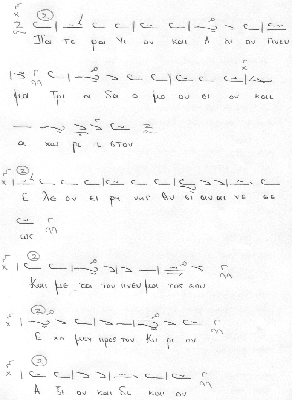 Πα τε ρα Υι ον και Α γι ον Πνευ
μα Τρι α δα ο μο ου σι ον και
α χω ρι σ τον
Ε λε ον ει ρη νης θυ σι αν αι νε σε
ως
Και με τα του πνευ μα τος σου
Ε χο μεν προς τον Κυ ρι ον
Α ξι ον και δι και ον